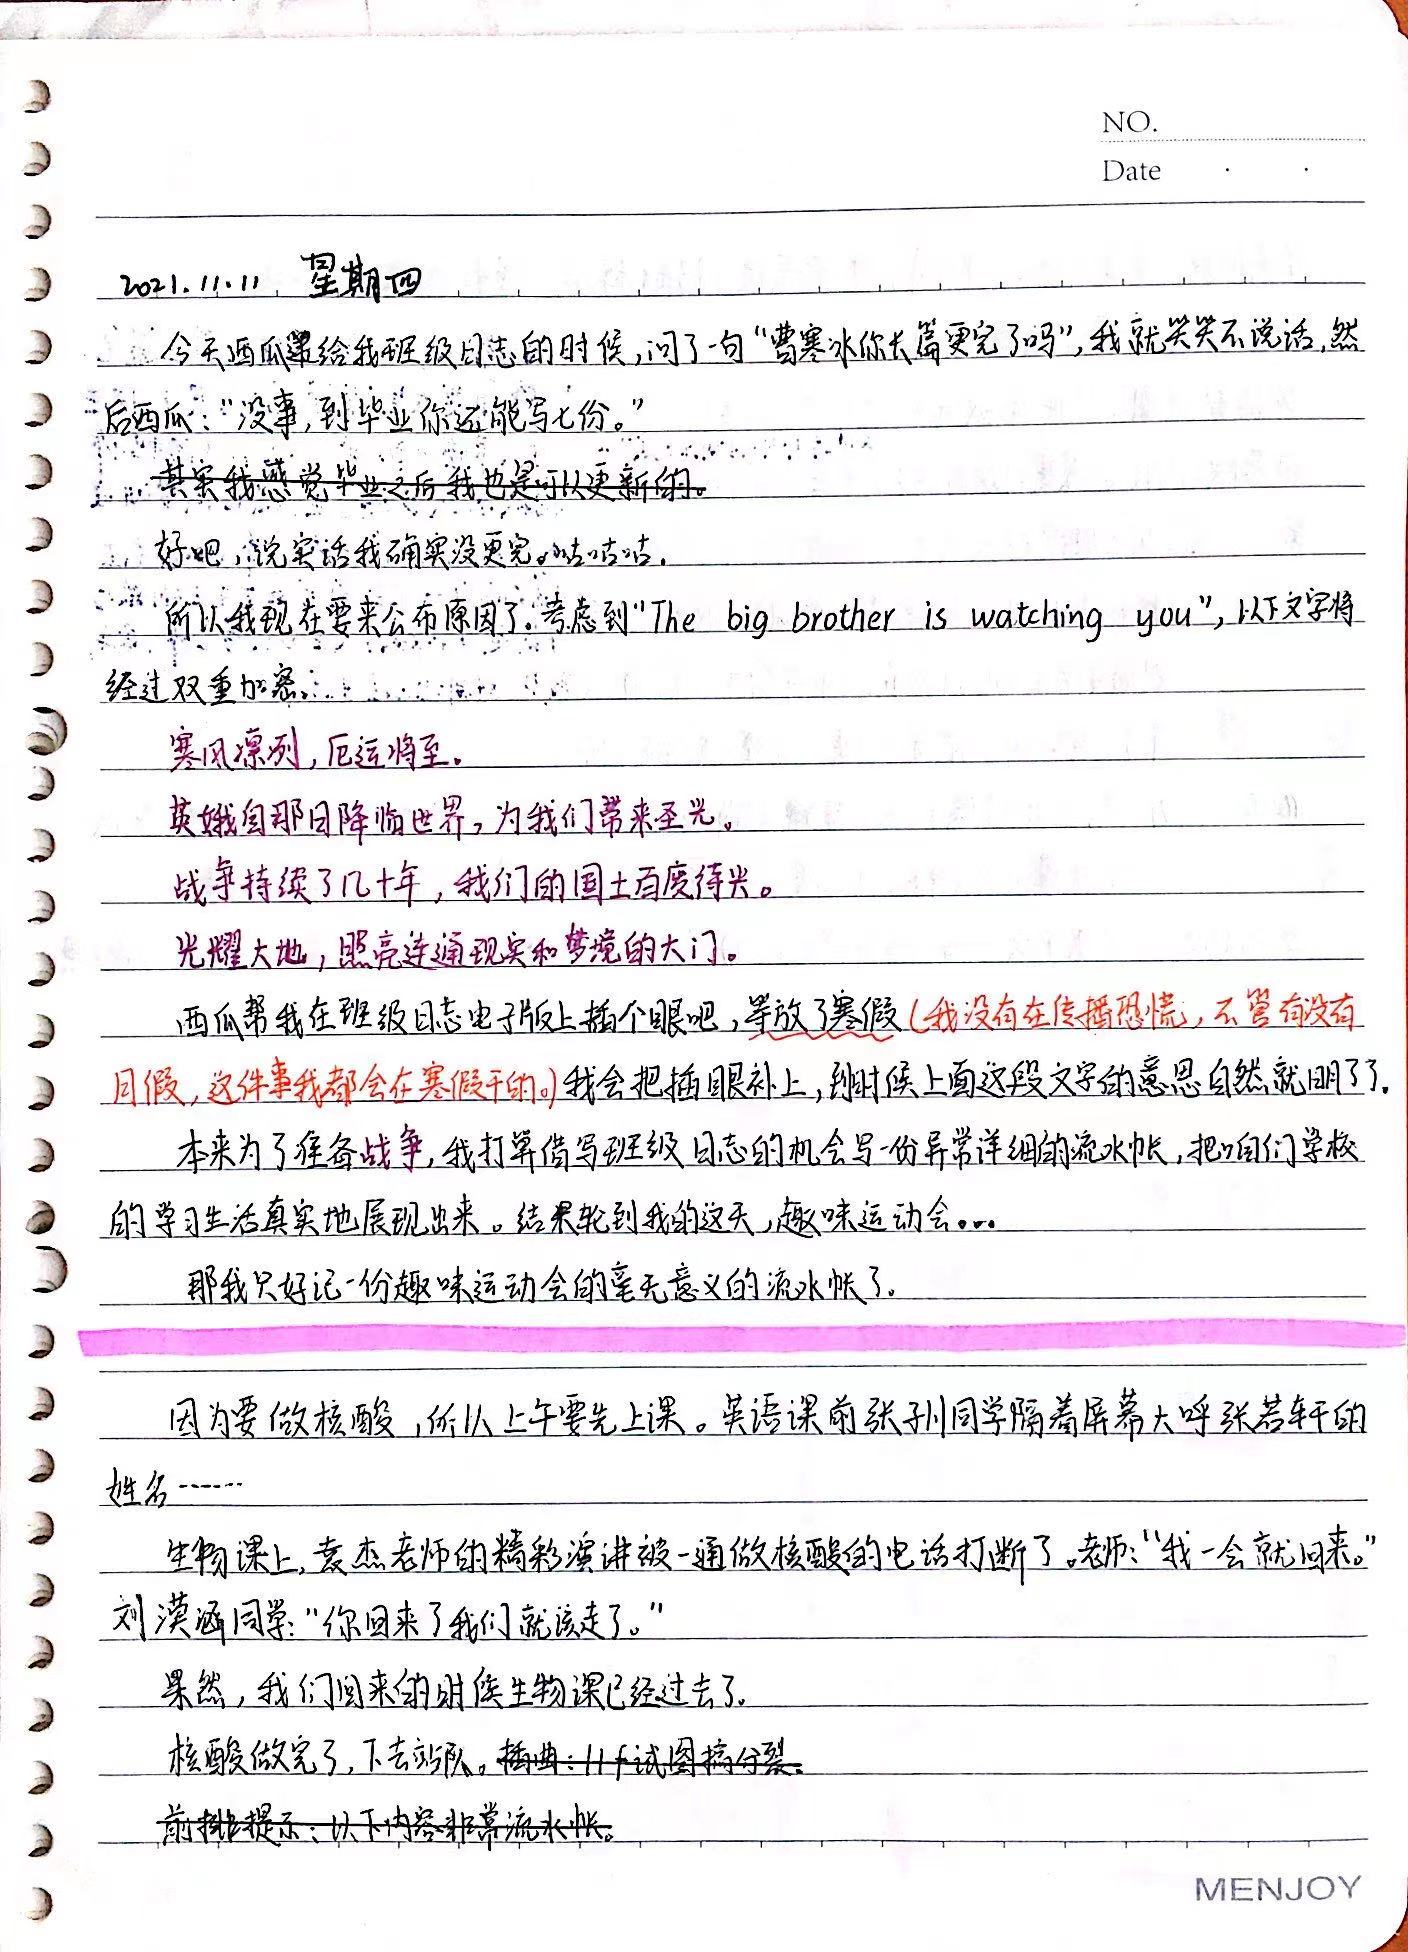 NO.
Date
2021.11.11 星期四
今天西瓜给我班级日志的时候,问了一句“曹寒冰你长篇更完了吗”,我就笑笑不说话,然
后西瓜:“没事,到毕业你还能写七份。”
其实我感觉毕业之后我也是可以更新的。
好吧,说实话我确实没更完。咕咕咕.
所以我现在要来公布原因了.考虑到“The big brother is watching you”,以下文字将
经过双重加密.
寒风凛冽,厄运将至。
英娥自那日降临世界,为我们带来圣光。
战争持续了几十年,我们的国土百废待兴。
光耀大地,照亮连通现实和梦境的大门。
西瓜帮我在班级日志电子版上插个眼吧,等放了寒假(我没有在传播恐慌,不管有没有
月假,这件事我都会在寒假干的。)我会把插眼补上,到时候上面这段文字的意思自然就明了了.
本来为了准备战争,我打算借写班级日志的机会写一份异常详细的流水帐,把咱们学校
的学习生活真实地展现出来。结果轮到我的这天,趣味运动会...
那我只好记一份趣味运动会的毫无意义的流水帐了.
因为要做核酸,所以上午要先上课。英语课前张子川同学隔着屏幕大呼张若轩的
姓名……
生物课上,袁杰老师的精彩演讲被一通做核酸的电话打断了。老师:“我一会就回来。”
刘漠涵同学:“你回来了我们就该走了。”
果然,我们回来的时候生物课已经过去了.
核酸做完了,下去站队。插曲:11f试图搞分裂。
前排提示:以下内容非常流水帐。
MENJOY